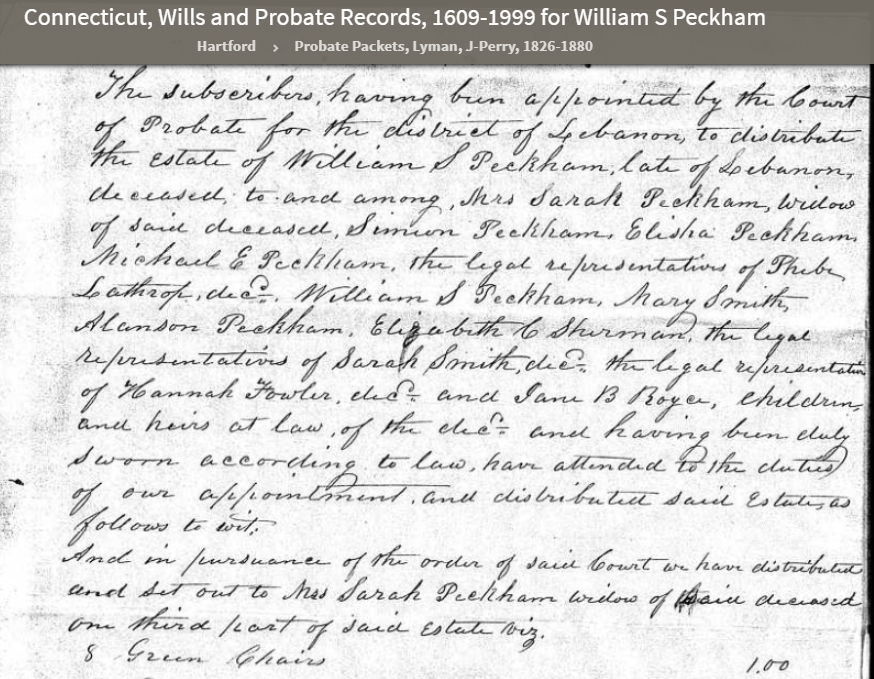 Connecticut, Wills and Probate Records, 1609-1999 for William S Peckham
Hartford > Probate Packets, Lyman, J-Perry, 1826-1880
The subscribers, having been appointed by the Court
of Probate for the district of Lebanon, to distribute
the estate of William S Peckham, late of Lebanon,
deceased, to and among, Mrs Sarah Peckham, widow
of said deceased, Simeon Peckham, Elisha Peckham,
Michael E Peckham, the legal representatives of Phebe
Lathrop, decd. William S Peckham, Mary Smith,
Alanson Peckham, Elizabeth C Sherman, the legal
representatives of Sarah Smith, decd. the legal representatives
of Hannah Fowler, decd. and Jane B Royce, children,
and heirs at law, of the decd. and having been duly
sworn according to law, have attended to the duties
of our appointment, and distributed said Estate, as
follows to wit,
And in pursuance of the order of said Court we have distributed
and set out to Mrs Sarah Peckham widow of said deceased
one third part of said Estate viz.
8 Green Chairs 1.00